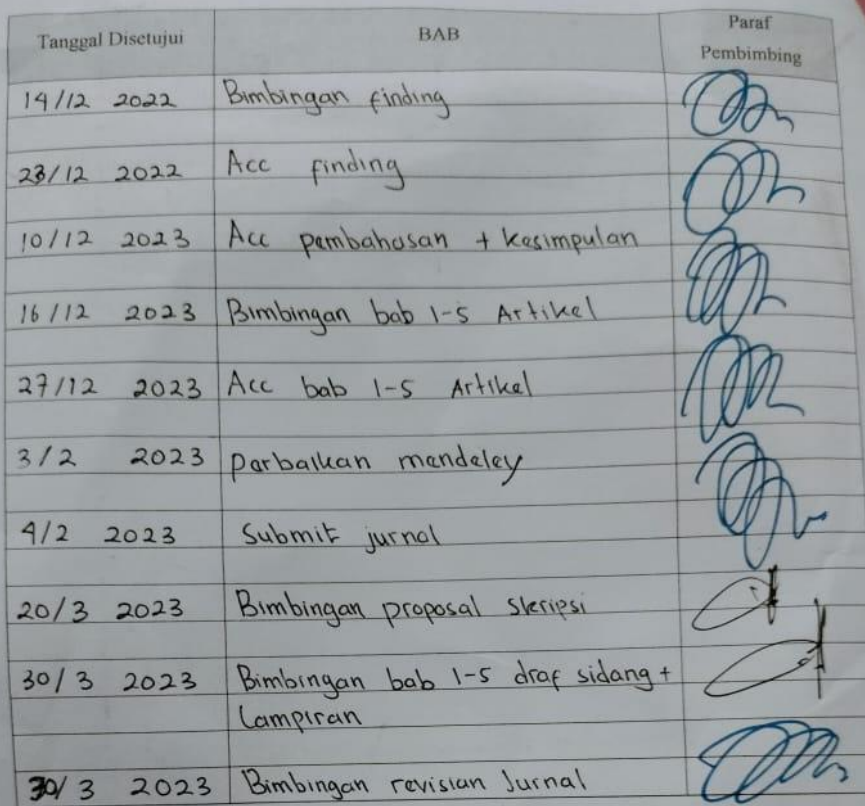 Tanggal Disetujui BAB Paraf
Pembimbing
14/12 2022 Bimbingan finding
23/12 2022 Acc finding
10/12 2023 Acc pembahasan + kesimpulan
16/12 2023 Bimbingan bab 1-5 Artikel
27/12 2023 Acc bab 1-5 Artikel
3/2 2023 Perbaikan mendeley
4/2 2023 Submit jurnal
20/3 2023 Bimbingan proposal skripsi
30/3 2023 Bimbingan bab 1-5 draf sidang +
Lampiran
30/3 2023 Bimbingan revisian Jurnal